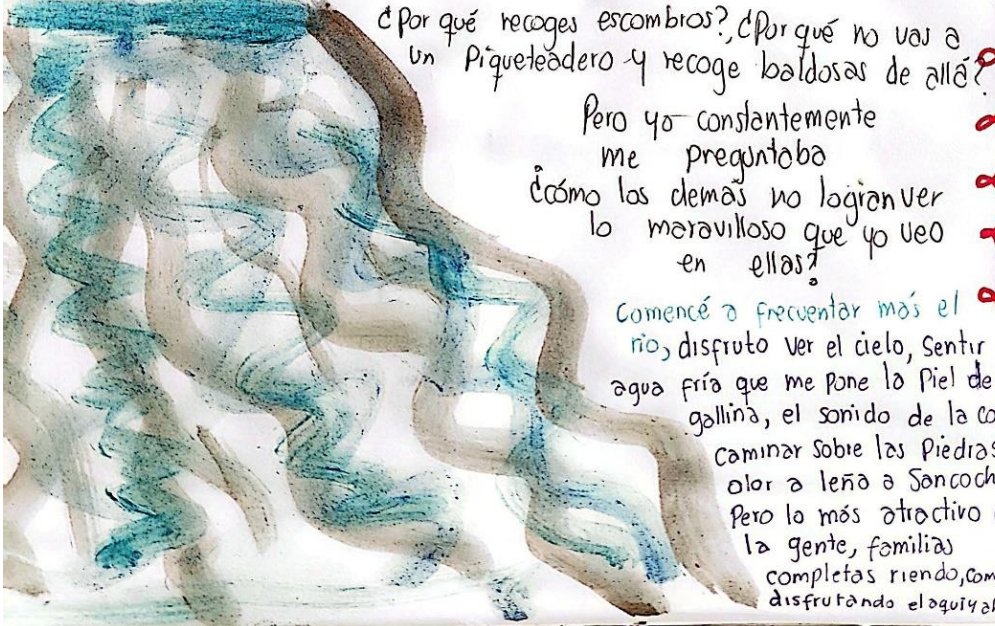 ¿Por qué recoges escombros?, ¿Por qué no vas a
un Piqueteadero y recoge baldosas de allá?
Pero yo constantemente
me preguntaba
¿cómo los demás no logran ver
lo maravilloso que yo veo
en ellas?
Comencé a frecuentar más el
rio, disfruto ver el cielo, Sentir
agua fría que me pone la Piel de
gallina, el sonido de la
caminar sobre las Piedras
olor a leña a
Pero lo más atractivo
la gente, familias
completas riendo,
disfrutando el aquí y